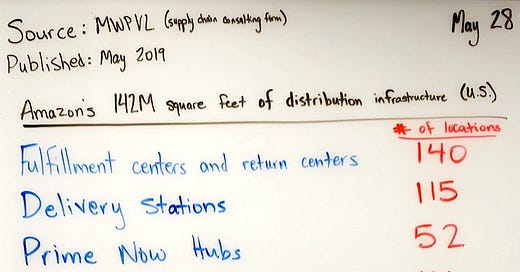 Source: MWPVL (supply chain consulting firm) May 28
Published: May 2019
Amazon's 142M square feet of distribution infrastructure (U.S.)
# of locations
Fulfillment centers and return centers 140
Delivery Stations 115
Prime Now Hubs 52